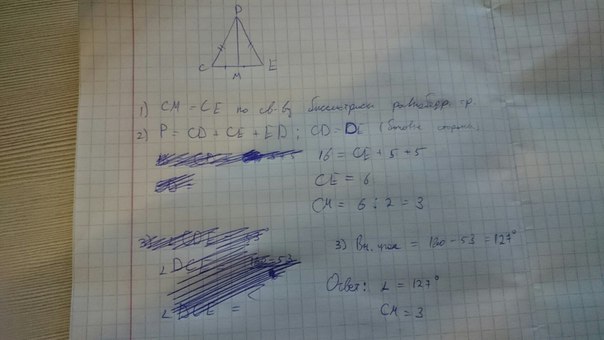 D
C M E
1) CM = CE по св-ву биссектрисы равнобедр. тр.
2) P = CD + CE + ED ; CD = DE (боковые стороны)
16 = CE + 5 + 5
CE = 6
CM = 6 : 2 = 3
3) ∠CDE
∠DCE = 180 - 53
3) Вн. угол = 180 - 53 = 127°
∠DCE =
Ответ: ∠ = 127°
CM = 3